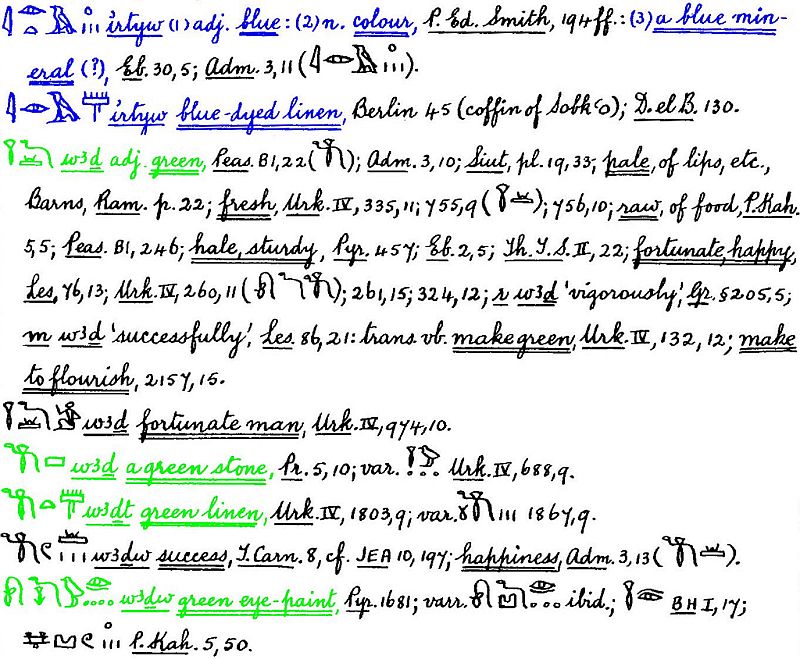 irtyw (1) adj. blue: (2) n. colour, P. Ed. Smith, 194 ff.: (3) a blue min-
eral (?), Eb. 30, 5; Adm. 3, 11 ( ).
irtyw blue-dyed linen, Berlin 45 (coffin of Sobkꜥo); D. el B. 130.
w3ḏ adj. green, Peas. B1, 22 ( ); Adm. 3, 10; Siut, pl. 19, 33; pale, of lips, etc.,
Barns, Ram. p. 22; fresh, Urk. IV, 335, 11; 755, 9 ( ); 756, 10; raw, of food, P. Kah.
5, 5; Peas. B1, 246; hale, sturdy, Pyr. 457; Eb. 2, 5; Th. T. S. II, 22; fortunate, happy,
Les. 76, 13; Urk. IV, 260, 11 ( ); 261, 15; 324, 12; r w3ḏ 'vigorously', Gr. § 205, 5;
m w3ḏ 'successfully', Les. 86, 21: trans. vb. make green, Urk. IV, 132, 12; make
to flourish, 2157, 15.
w3ḏ fortunate man, Urk. IV, 974, 10.
w3ḏ a green stone, Pr. 5, 10; var. Urk. IV, 688, 9.
w3ḏt green linen, Urk. IV, 1803, 9; var. 1867, 9.
w3ḏw success, T. Carn. 8, cf. JEA 10, 197; happiness, Adm. 3, 13 ( ).
w3ḏw green eye-paint, Pyr. 1681; varr. ibid.; BH I, 17;
P. Kah. 5, 50.